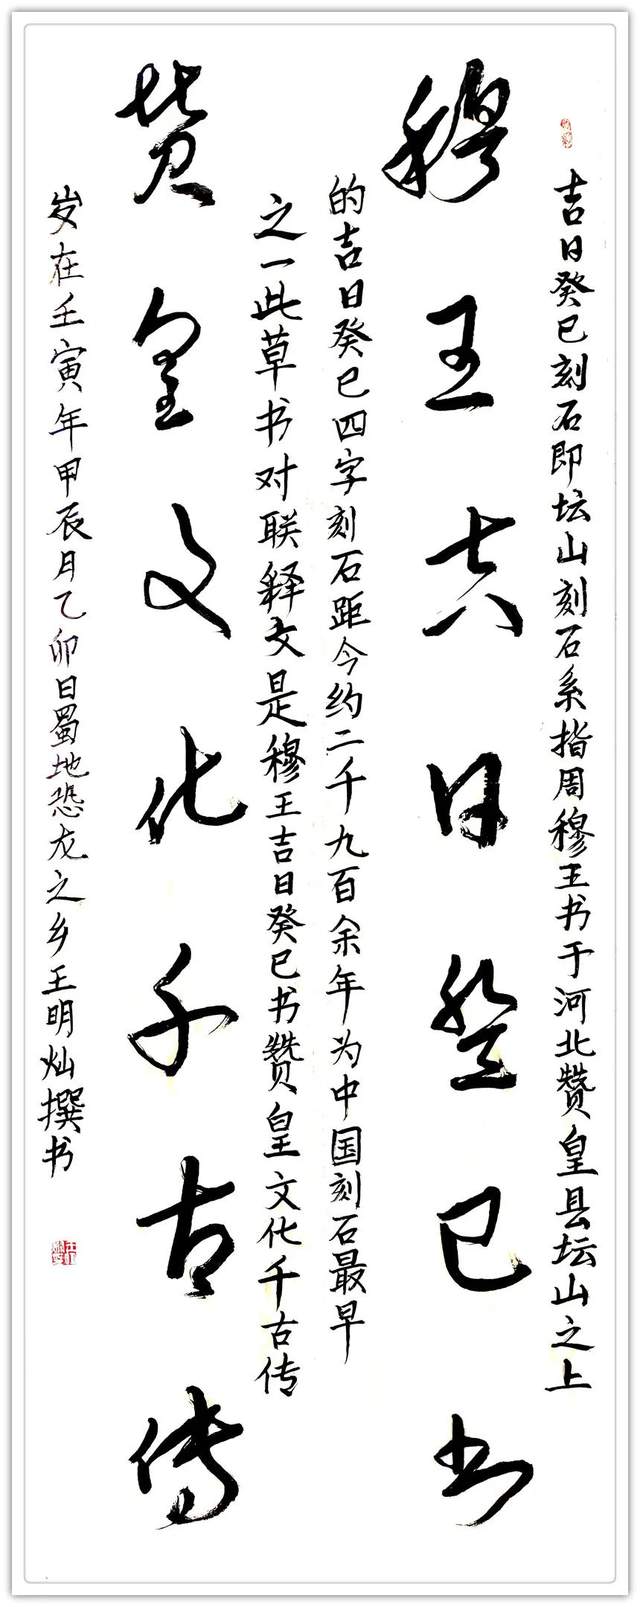 吉日癸巳刻石即坛山刻石系指周穆王书于河北赞皇县坛山之上
穆王吉日癸巳书
的吉日癸巳四字刻石距今约二千九百余年为中国刻石最早
之一此草书对联释文是穆王吉日癸巳书赞皇文化千古传
赞皇文化千古传
岁在壬寅年甲辰月乙卯日蜀地恐龙之乡王明灿撰书